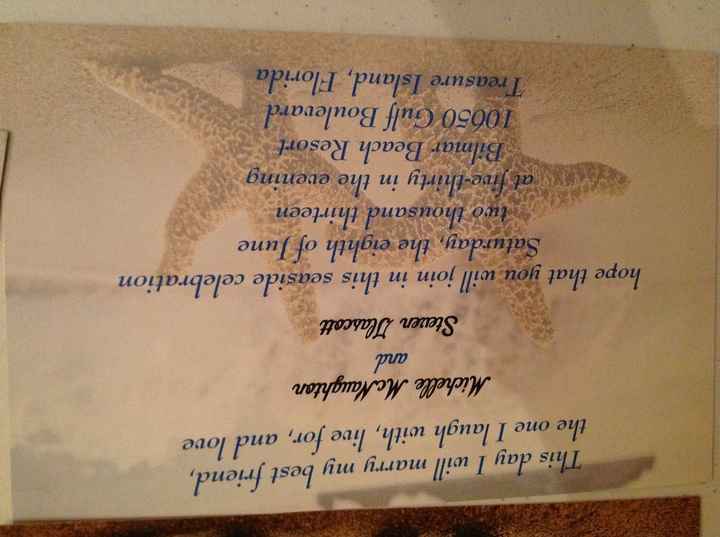 This day I will marry my best friend,
the one I laugh with, live for, and love
Michelle McNaughton
and
Steven Flascott
hope that you will join in this seaside celebration
Saturday, the eighth of June
two thousand thirteen
at five-thirty in the evening
Bilmar Beach Resort
10650 Gulf Boulevard
Treasure Island, Florida